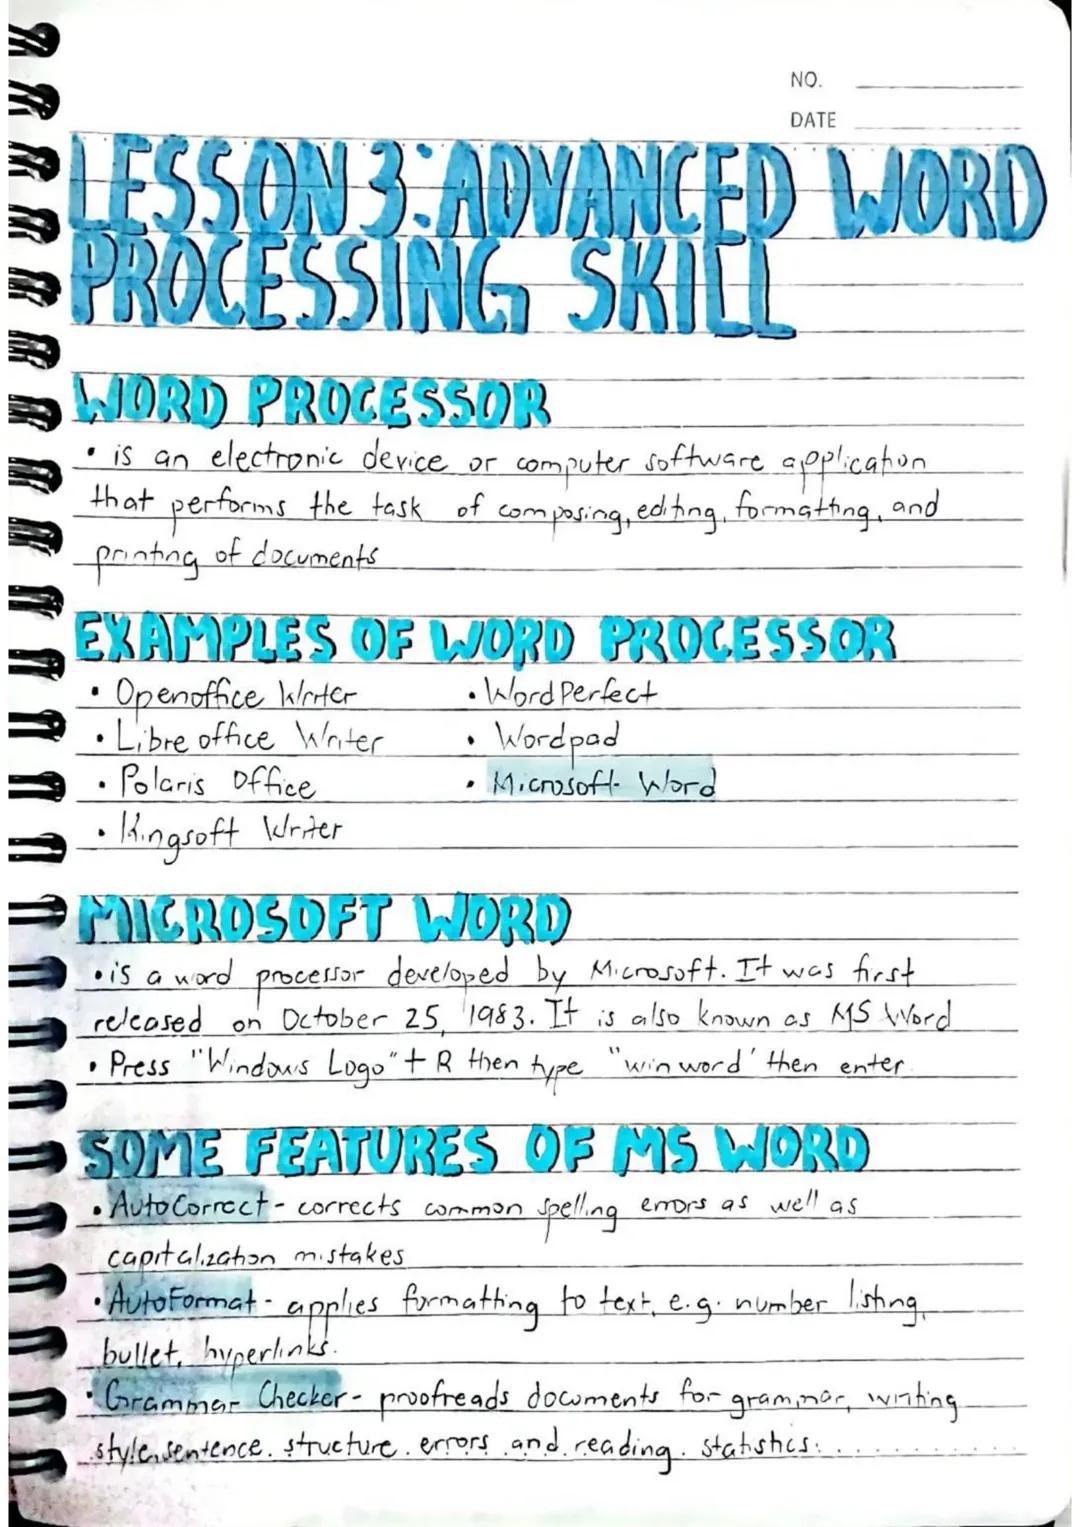 NO.
DATE
LESSON 3: ADVANCED WORD
PROCESSING SKILL
WORD PROCESSOR
• is an electronic device or computer software application
that performs the task of composing, editing, formatting, and
printing of documents
EXAMPLES OF WORD PROCESSOR
• Openoffice Writer • WordPerfect
• Libre office Writer • Wordpad
• Polaris Office • Microsoft Word
• Kingsoft Writer
MICROSOFT WORD
• is a word processor developed by Microsoft. It was first
released on October 25, 1983. It is also known as MS Word
• Press "Windows Logo" + R then type "winword' then enter
SOME FEATURES OF MS WORD
• AutoCorrect - corrects common spelling errors as well as
capitalization mistakes
• AutoFormat - applies formatting to text, e.g. number listing,
bullet, hyperlinks.
• Grammar Checker - proofreads documents for grammar, writing
style, sentence structure errors and reading statistics.